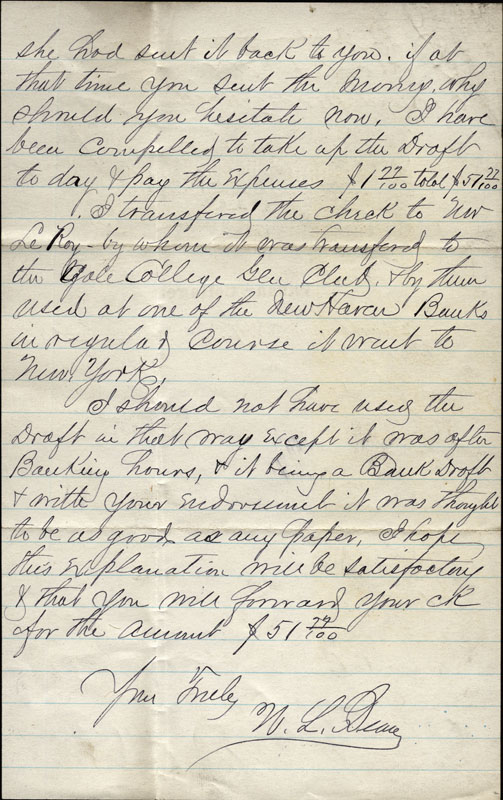 she had sent it back to you. if at
that time you sent the money, why
should you hesitate now. I have
been compelled to take up the Draft
to day & pay the Expenses $1 27/100 total $51 27/100
I transfered the check to Mr
LeRoy - by whom it was transfered to
the Yale College Glee Club, & by them
used at one of the New Haven Banks
in regular course it went to
New York.
I should not have used the
Draft in that way except it was after
Banking hours, & it being a Bank Draft
& with your endorsement it was thought
to be as good as any paper, I hope
this explanation will be satisfactory
& that you will forward your ck
for the amount $51 27/100
Your Truly
W. L.